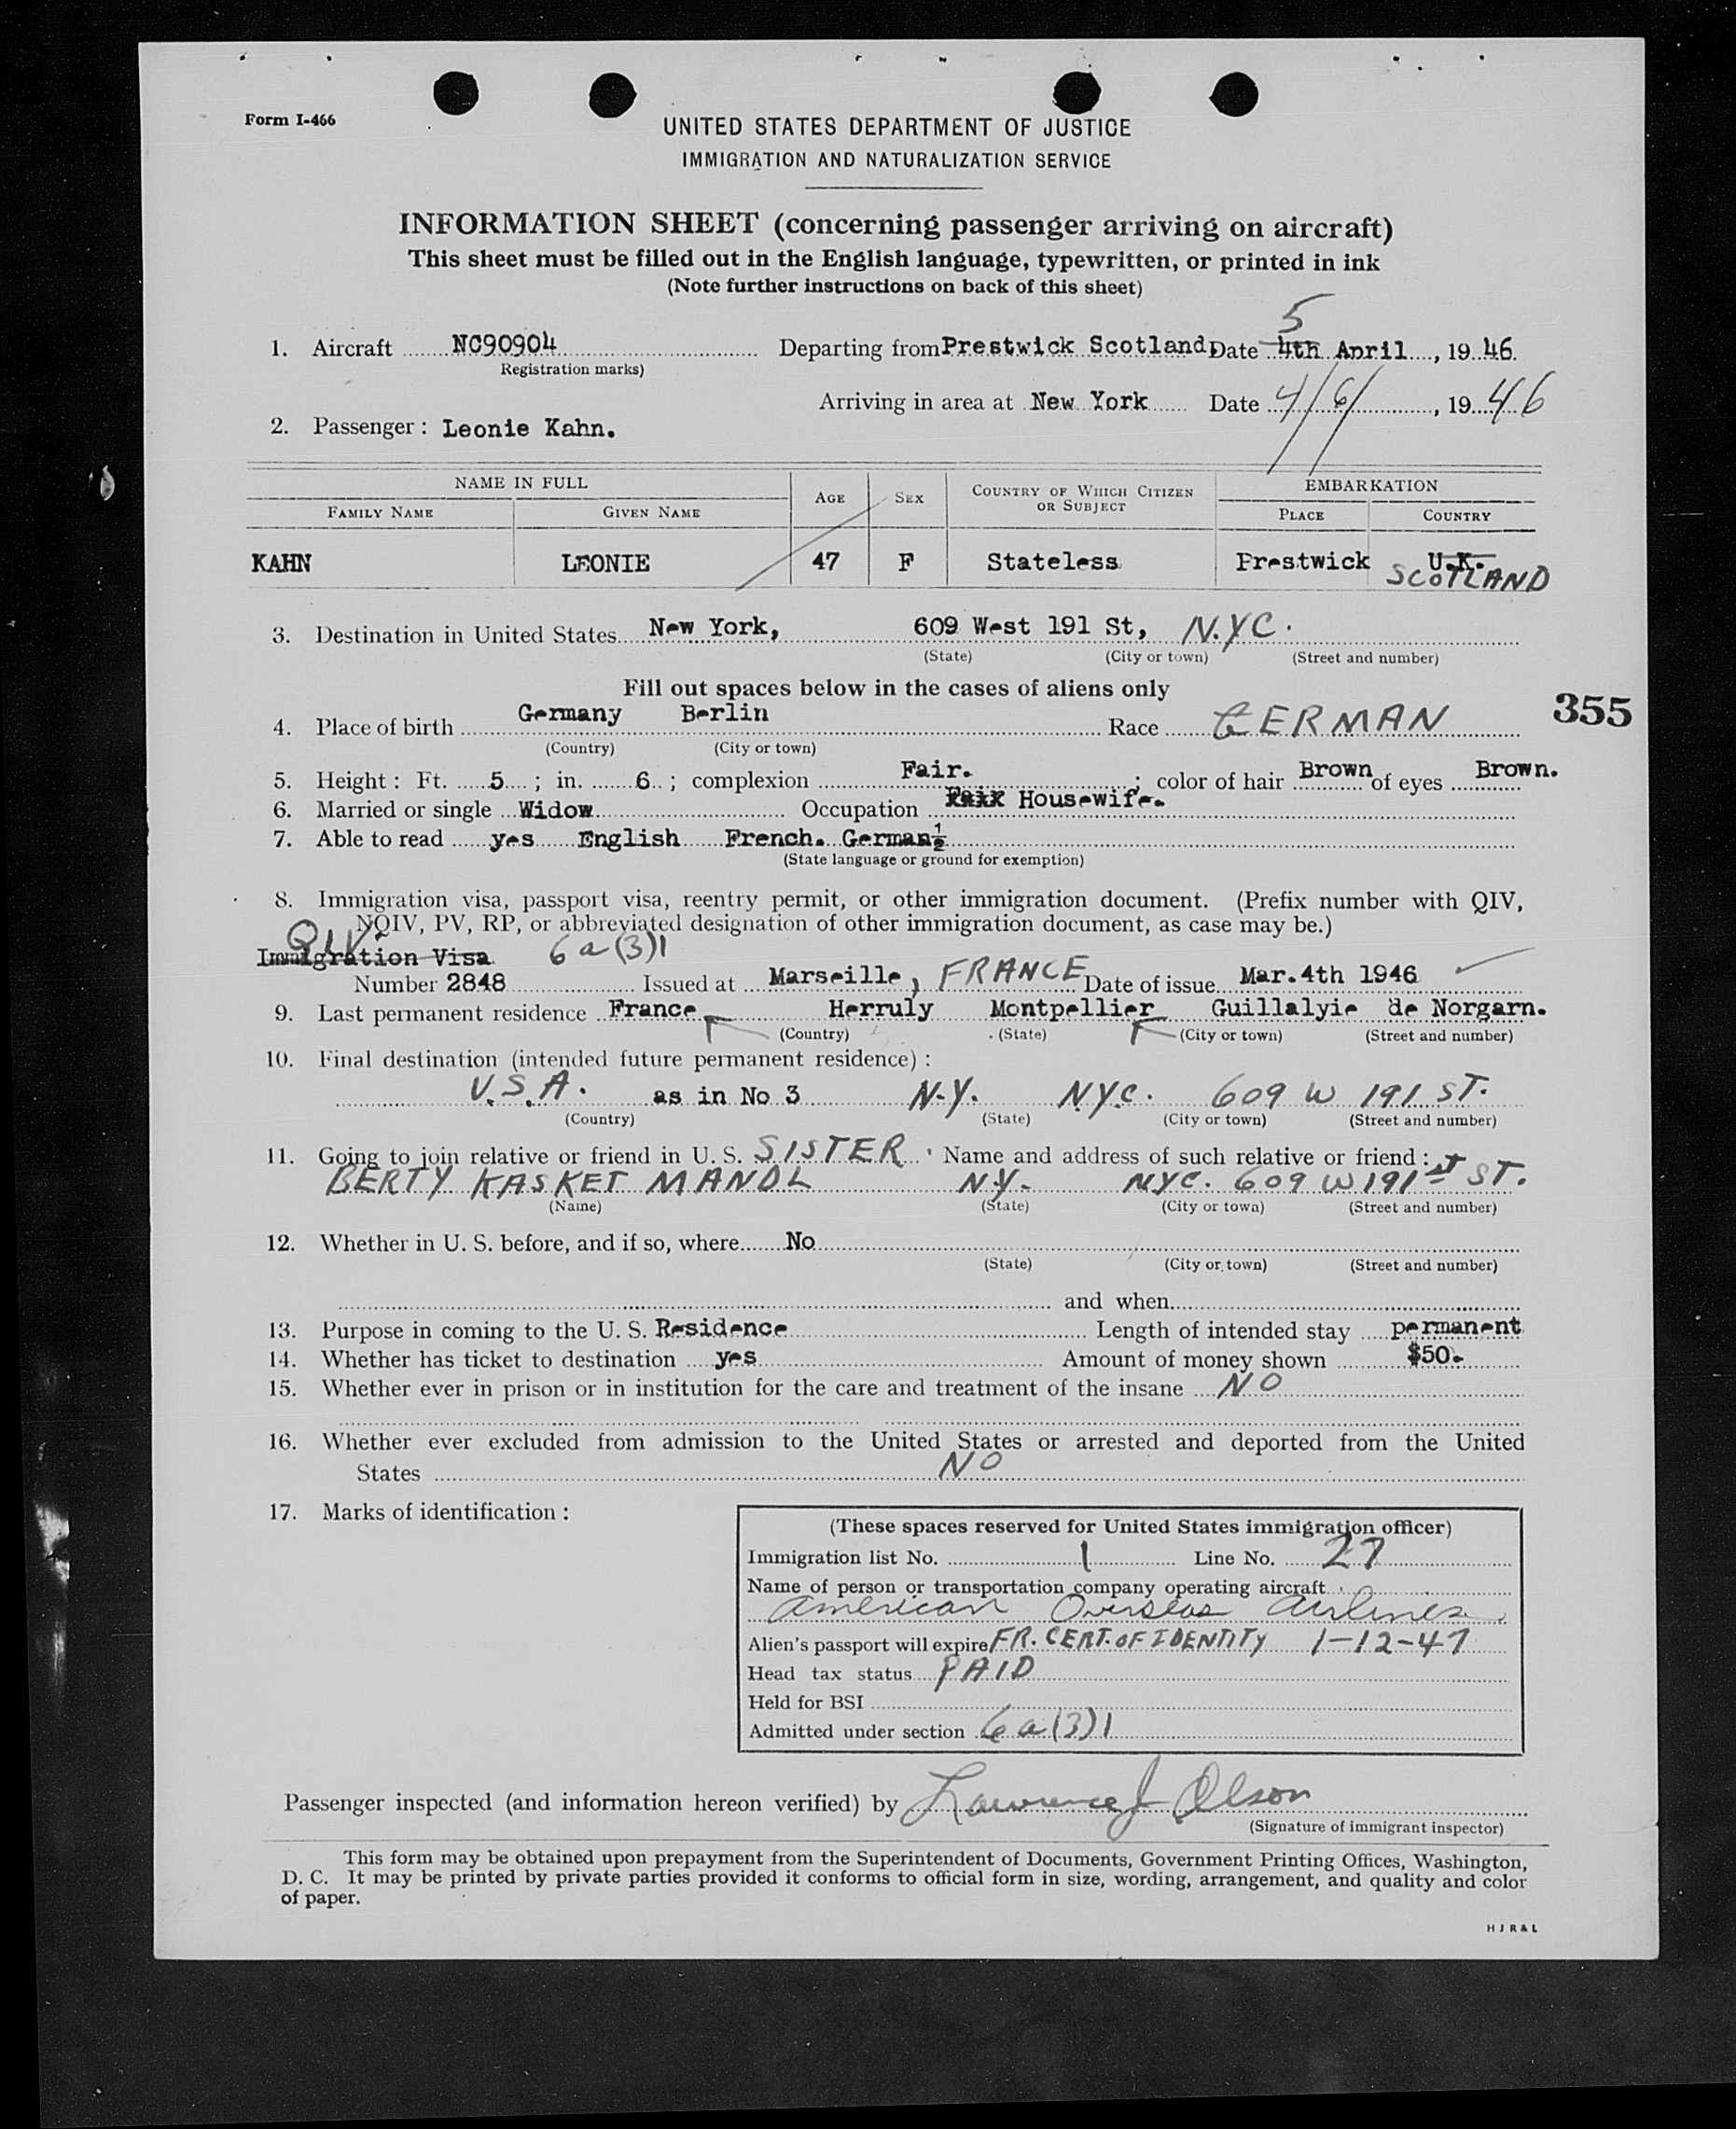 Form I-466
UNITED STATES DEPARTMENT OF JUSTICE
IMMIGRATION AND NATURALIZATION SERVICE
INFORMATION SHEET (concerning passenger arriving on aircraft)
This sheet must be filled out in the English language, typewritten, or printed in ink
(Note further instructions on back of this sheet)
5
1. Aircraft NC90904 Departing from Prestwick Scotland Date 4th April, 19 46.
Registration marks)
Arriving in area at New York Date 4/6/, 19 46
2. Passenger: Leonie Kahn.
NAME IN FULL AGE SEX COUNTRY OF WHICH CITIZEN OR SUBJECT EMBARKATION
FAMILY NAME GIVEN NAME PLACE COUNTRY
KAHN LEONIE 47 F Stateless Prestwick U.K.
SCOTLAND
3. Destination in United States New York, 609 West 191 St, N.Y.C.
(State) (City or town) (Street and number)
Fill out spaces below in the cases of aliens only
355
4. Place of birth Germany Berlin Race GERMAN
(Country) (City or town)
5. Height: Ft. 5; in. 6; complexion Fair.; color of hair Brown of eyes Brown.
6. Married or single Widow Occupation Housewife.
7. Able to read yes English French. German½
(State language or ground for exemption)
8. Immigration visa, passport visa, reentry permit, or other immigration document. (Prefix number with QIV,
NQIV, PV, RP, or abbreviated designation of other immigration document, as case may be.)
QIV
Immigration Visa 6a(3)1
Number 2848 Issued at Marseille, FRANCE Date of issue Mar.4th 1946
9. Last permanent residence France Herruly Montpellier Guillalyie de Norgarn.
(Country) (State) (City or town) (Street and number)
10. Final destination (intended future permanent residence):
U.S.A. as in No 3 N.Y. NYC. 609 W 191 ST.
(Country) (State) (City or town) (Street and number)
11. Going to join relative or friend in U. S. SISTER. Name and address of such relative or friend:
BERTY KASKET MANDL N.Y. NYC. 609 W 191st ST.
(Name) (State) (City or town) (Street and number)
12. Whether in U. S. before, and if so, where No
(State) (City or town) (Street and number)
and when
13. Purpose in coming to the U. S. Residence Length of intended stay permanent
14. Whether has ticket to destination yes Amount of money shown $50.
15. Whether ever in prison or in institution for the care and treatment of the insane NO
16. Whether ever excluded from admission to the United States or arrested and deported from the United
States NO
17. Marks of identification:
(These spaces reserved for United States immigration officer)
Immigration list No. 1 Line No. 27
Name of person or transportation company operating aircraft
American Overseas Airlines
Alien's passport will expire FR. CERT. OF IDENTITY 1-12-47
Head tax status PAID
Held for BSI
Admitted under section 6a(3)1
Passenger inspected (and information hereon verified) by Lawrence J Olson
(Signature of immigrant inspector)
This form may be obtained upon prepayment from the Superintendent of Documents, Government Printing Offices, Washington,
D. C. It may be printed by private parties provided it conforms to official form in size, wording, arrangement, and quality and color
of paper.
H J R & L